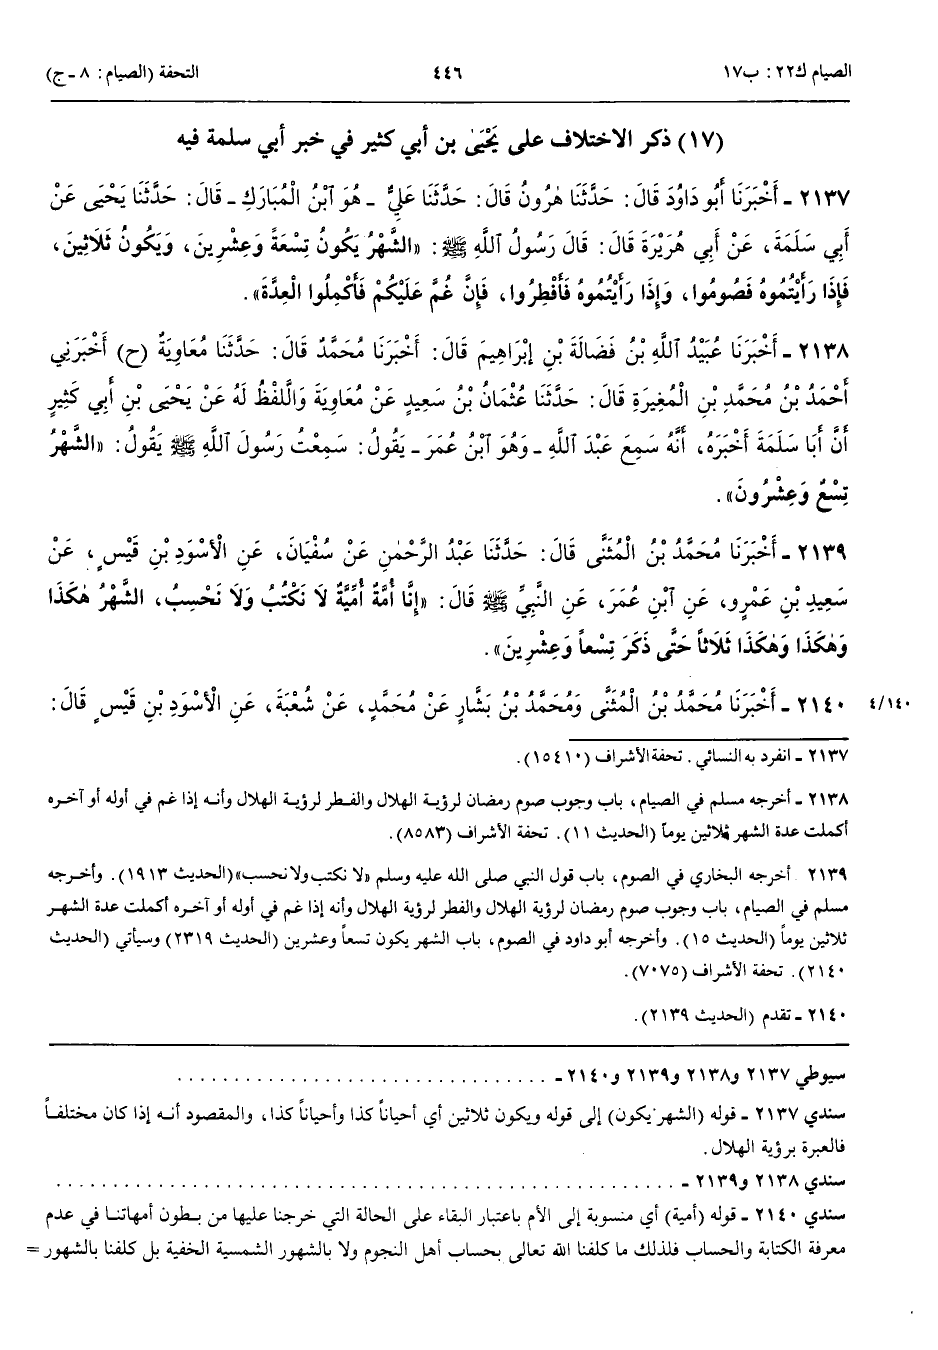 الصيام ك٢٢: ب١٧ ٤٤٦ التحفة (الصيام: ٨ ـ ج)
(١٧) ذكر الاختلاف على يَحْيَىٰ بن أبي كثير في خبر أبي سلمة فيه
٢١٣٧ ـ أَخْبَرَنَا أَبُو دَاوُدَ قَالَ: حَدَّثَنَا هٰرُونُ قَالَ: حَدَّثَنَا عَلِيٌّ ـ هُوَ ٱبْنُ الْمُبَارَكِ ـ قَالَ: حَدَّثَنَا يَحْيَى عَنْ
أَبِي سَلَمَةَ، عَنْ أَبِي هُرَيْرَةَ قَالَ: قَالَ رَسُولُ ٱللَّهِ ﷺ: «الشَّهْرُ يَكُونُ تِسْعَةً وَعِشْرِينَ، وَيَكُونُ ثَلَاثِينَ،
فَإِذَا رَأَيْتُمُوهُ فَصُومُوا، وَإِذَا رَأَيْتُمُوهُ فَأَفْطِرُوا، فَإِنْ غُمَّ عَلَيْكُمْ فَأَكْمِلُوا الْعِدَّةَ».
٢١٣٨ ـ أَخْبَرَنَا عُبَيْدُ ٱللَّهِ بْنُ فَضَالَةَ بْنِ إِبْرَاهِيمَ قَالَ: أَخْبَرَنَا مُحَمَّدٌ قَالَ: حَدَّثَنَا مُعَاوِيَةُ (ح) أَخْبَرَنِي
أَحْمَدُ بْنُ مُحَمَّدِ بْنِ الْمُغِيرَةِ قَالَ: حَدَّثَنَا عُثْمَانُ بْنُ سَعِيدٍ عَنْ مُعَاوِيَةَ وَاللَّفْظُ لَهُ عَنْ يَحْيَى بْنِ أَبِي كَثِيرٍ
أَنَّ أَبَا سَلَمَةَ أَخْبَرَهُ، أَنَّهُ سَمِعَ عَبْدَ ٱللَّهِ ـ وَهُوَ ٱبْنُ عُمَرَ ـ يَقُولُ: سَمِعْتُ رَسُولَ ٱللَّهِ ﷺ يَقُولُ: «الشَّهْرُ
تِسْعٌ وَعِشْرُونَ».
٢١٣٩ ـ أَخْبَرَنَا مُحَمَّدُ بْنُ الْمُثَنَّى قَالَ: حَدَّثَنَا عَبْدُ الرَّحْمٰنِ عَنْ سُفْيَانَ، عَنِ الْأَسْوَدِ بْنِ قَيْسٍ، عَنْ
سَعِيدِ بْنِ عَمْرٍو، عَنِ ٱبْنِ عُمَرَ، عَنِ النَّبِيِّ ﷺ قَالَ: «إِنَّا أُمَّةٌ أُمِّيَّةٌ لَا نَكْتُبُ وَلَا نَحْسِبُ، الشَّهْرُ هٰكَذَا
وَهٰكَذَا وَهٰكَذَا ثَلَاثاً حَتَّى ذَكَرَ تِسْعاً وَعِشْرِينَ».
٢١٤٠ ـ أَخْبَرَنَا مُحَمَّدُ بْنُ الْمُثَنَّى وَمُحَمَّدُ بْنُ بَشَّارٍ عَنْ مُحَمَّدٍ، عَنْ شُعْبَةَ، عَنِ الْأَسْوَدِ بْنِ قَيْسٍ قَالَ: ٤/١٤٠
٢١٣٧ ـ انفرد به النسائي. تحفة الأشراف (١٥٤١٠).
٢١٣٨ ـ أخرجه مسلم في الصيام، باب وجوب صوم رمضان لرؤية الهلال والفطر لرؤية الهلال وأنه إذا غم في أوله أو آخره
أكملت عدة الشهر ثلاثين يوماً (الحديث ١١). تحفة الأشراف (٨٥٨٣).
٢١٣٩ أخرجه البخاري في الصوم، باب قول النبي صلى الله عليه وسلم «لا نكتب ولا نحسب»(الحديث ١٩١٣). وأخرجه
مسلم في الصيام، باب وجوب صوم رمضان لرؤية الهلال والفطر لرؤية الهلال وأنه إذا غم في أوله أو آخره أكملت عدة الشهر
ثلاثين يوماً (الحديث ١٥). وأخرجه أبو داود في الصوم، باب الشهر يكون تسعاً وعشرين (الحديث ٢٣١٩) وسيأتي (الحديث
٢١٤٠). تحفة الأشراف (٧٠٧٥).
٢١٤٠ ـ تقدم (الحديث ٢١٣٩).
سيوطي ٢١٣٧ و٢١٣٨ و٢١٣٩ و٢١٤٠ ـ ................................
سندي ٢١٣٧ ـ قوله (الشهر يكون) إلى قوله ويكون ثلاثين أي أحياناً كذا وأحياناً كذا، والمقصود أنه إذا كان مختلفاً
فالعبرة برؤية الهلال.
سندي ٢١٣٨ و٢١٣٩ ـ ................................
سندي ٢١٤٠ ـ قوله (أمية) أي منسوبة إلى الأم باعتبار البقاء على الحالة التي خرجنا عليها من بطون أمهاتنا في عدم
معرفة الكتابة والحساب فلذلك ما كلفنا الله تعالى بحساب أهل النجوم ولا بالشهور الشمسية الخفية بل كلفنا بالشهور =